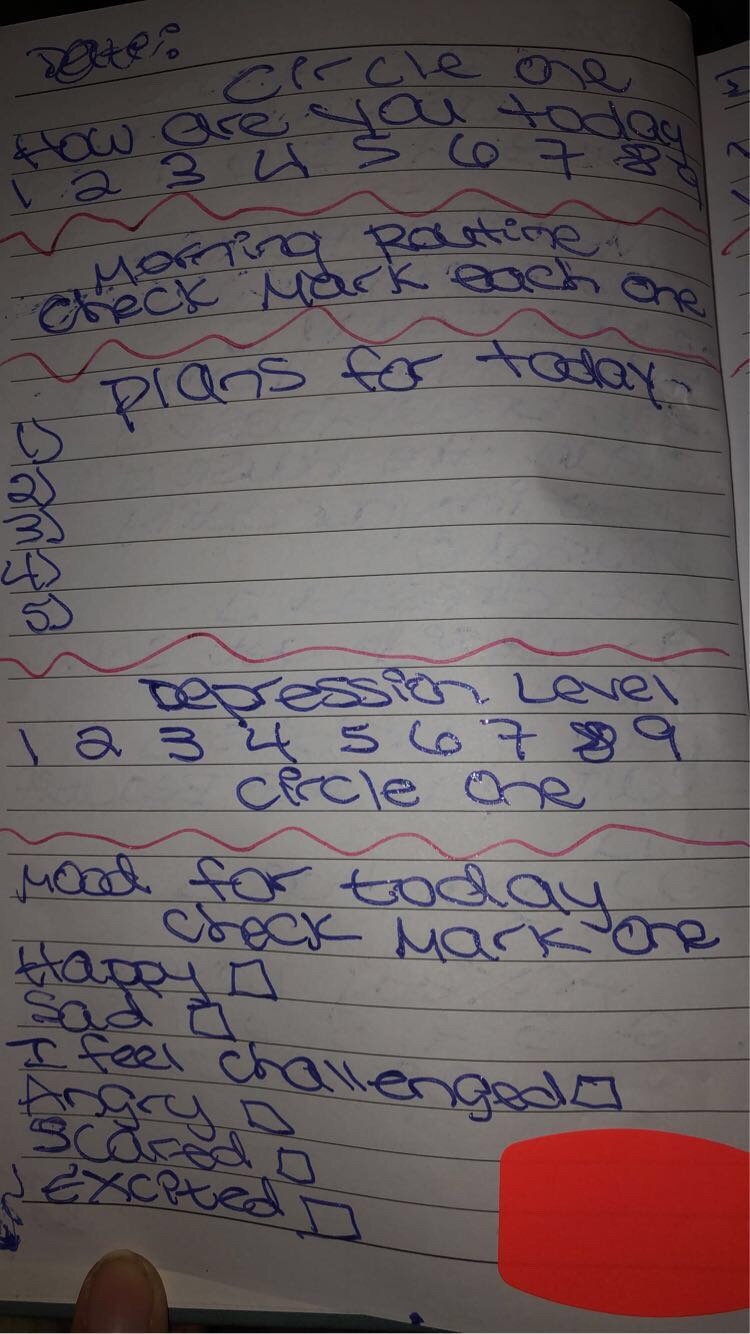 Date:
Circle one
How are you today
1 2 3 4 5 6 7 8 9
Morning Routine
Check Mark each one
Plans for today
1)
2)
3)
4)
5)
Depression Level
1 2 3 4 5 6 7 8 9
Circle one
Mood for today
Check Mark one
Happy □
Sad □
I feel challenged □
Angry □
Scared □
Excited □